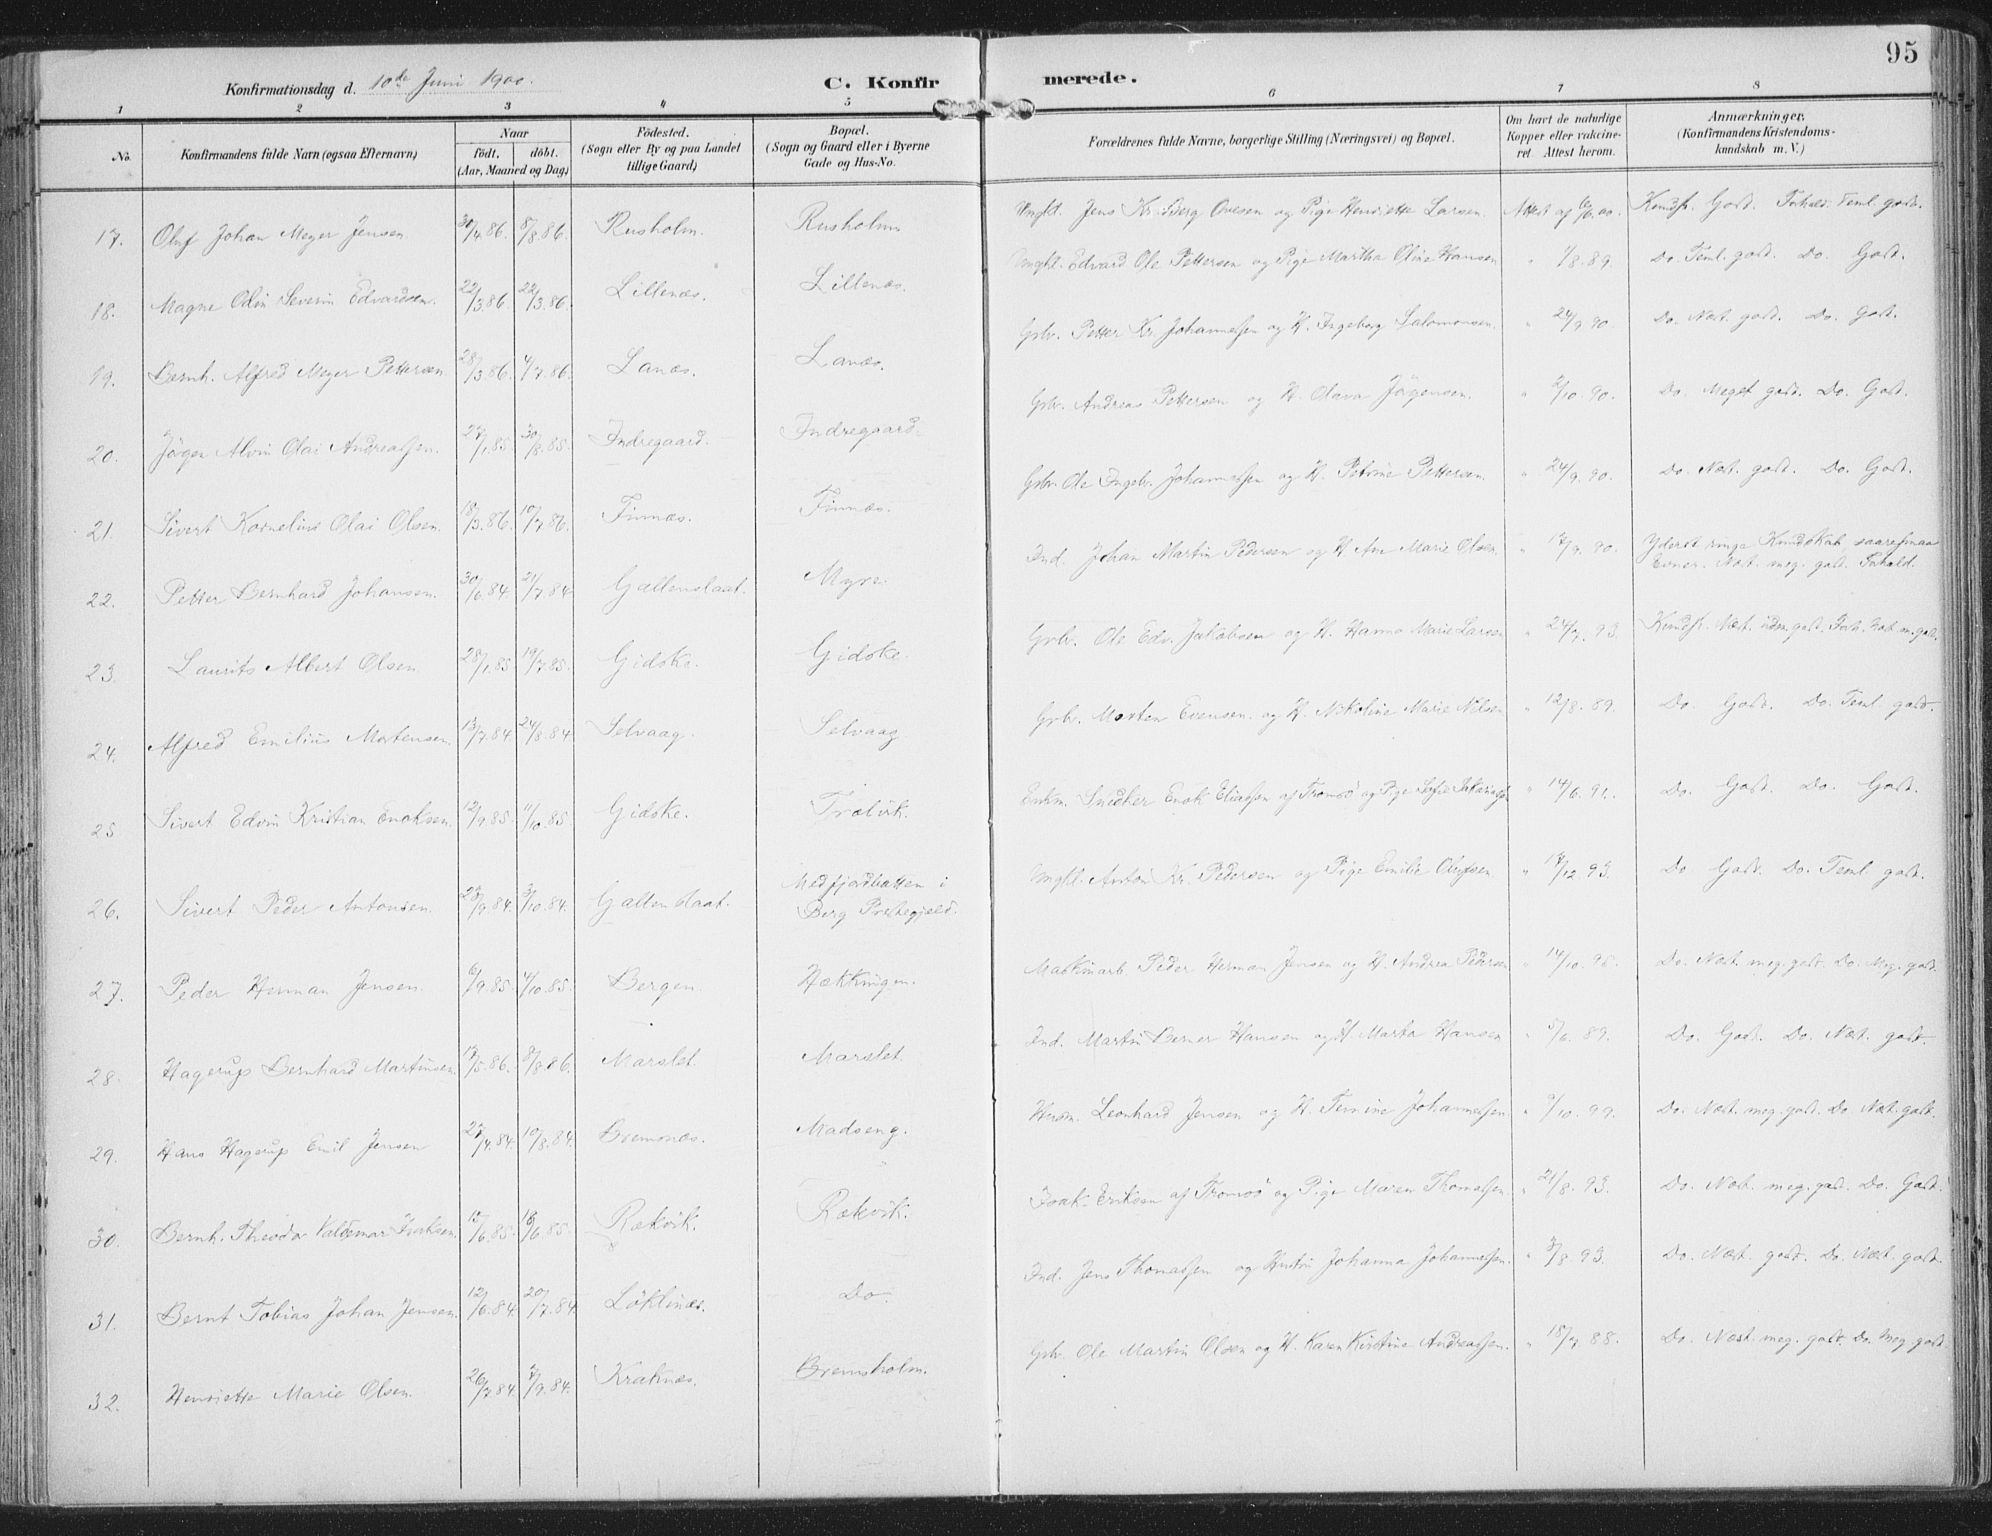 95
Konfirmationsdag d. 10de Juni 1900. C. Konfirmerede.
1 2 3 4 5 6 7 8
No. Konfirmandens fulde Navn (ogsaa Efternavn) Naar födt, döbt. (Aar, Maaned og Dag) Födested. (Sogn eller By og paa Landet tillige Gaard) Bopæl. (Sogn og Gaard eller i Byerne Gade og Hus-No. Forældrenes fulde Navne, borgerlige Stilling (Næringsvei) og Bopæl. Om havt de naturlige Kopper eller vakcineret Attest herom. Anmærkninger, (Konfirmandens Kristendomskundskab m. V.)
17. Oluf Johan Meyer Jensen 30/4.86. 8/8.86. Rusholm. Rusholm Ungkl. Jens Kr. Berg Ovesen og Pige Henriette Larsen. Attest af 6/6.00. Kundsk. Godt. Forhold. Teml. godt.
18. Magne Odin Severin Edvardsen. 22/3.86. 22/3.86. Lillenæs. Lillenæs. Ungkl. Edvard Ole Pettersen og Pige Martha Oline Hansen " 1/8.89. Do. Teml. godt. Do. Godt.
19. Bernh. Alfred Meyer Pettersen 28/3.86. 4/7.86. Lanæs. Lanæs. Grbr. Petter Kr. Johannessen og H. Ingeborg Salomonsen. " 24/9.90 Do. Næst. godt. Do. Godt.
20. Jörgen Alvin Olai Andreassen. 27/1.85 30/8.85. Indregaard. Indregaard. Grbr. Andreas Pettersen og H. Olava Jörgensen. " 2/10.90. Do. Meget godt. Do. Godt.
21. Sivert Kornelius Olai Olsen. 18/3.86. 10/7.86. Finnæs. Finnæs. Grbr. Ole Ingebr. Johannessen og H. Petrine Pettersen. " 24/9.90. Do. Næst. godt. Do. Godt.
22. Petter Bernhard Johansen. 30/6.84 21/7.84 Galtenslaat. Myre. Ind. Johan Martin Pedersen og H. Ane Marie Olsen. " 17/9.90. Yderst ringe Kundskab, saare smaa Evner. Næst. meg. godt. Forhold.
23. Laurits Albert Olsen. 28/1.85 19/7.85. Gidske. Gidske. Grbr. Ole Edv. Jakobsen og H. Hanna Marie Larsen " 24/7.93. Kundsk. Næst. godt. Forh. Næst m. godt.
24. Alfred Emilius Mortensen. 13/7.84 24/8.84. Selvaag. Selvaag Grbr. Morten Evensen. og H. Nikoline Marie Nilsen " 12/8.89. Do. Godt. Do. Teml. godt.
25 Sivert Edvin Kristian Enoksen. 12/9.85. 11/10.85. Gidske. Trælvik. Enkm. Snedker Enok Eliassen af Tromsö og Pige " 14/6.91. Do. Godt. Do. Godt.
26. Sivert Peder Antonsen. 23/9.84. 3/10.84. Galtenslaat. Medfjordbotten i Berg Prestegjeld. Ungkl. Anton Kr. Pedersen og Pige Emilie Olufsen " 17/12.93. Do Godt. Do. Teml. godt.
27. Peder Herman Jensen. 6/9.85. 4/10.85. Bergen. Hækkingen. Maskinarb. Peder Herman Jensen og H. Andrea Pedersen " 14/10.95. Do. Næst. meg. godt. Do. Meg. godt.
28. Hagerup Bernhard Martinsen. 17/5.86. 8/8.86. Marslet. Marslet. Ind. Martin Berner Hansen og H. Marta Hansen " 5/6.89. Do. Godt. Do. Næst. godt.
29. Hans Hagerup Emil Jensen 27/4.84. 10/8.84. Bremsnes. Madseng. Husm. Leonhard Jensen og H. Temine Johannessen " 9/10.99. Do. Næst. meg. godt. Do. Næst. godt.
30. Bernh. Theodor Valdemar Isaksen. 15/6.85. 18/6.85. Rækvik. Rækvik. Isak Eriksen af Tromsö og Pige Maren Thomassen. " 21/8.93. Do. Næst. meg. godt. Do. Godt.
31. Bernt Tobias Johan Jensen. 12/6.84. 20/7.84. Löklinæs. Do. Ind. Jens Thomassen og Hustru Johanna Johannessen. " 3/8.93. Do. Næst. godt. Do. Næst. godt.
32. Henriette Marie Olsen. 26/7.84. 7/9.84. Kraknæs. Bremsholm. Grbr. Ole Martin Olsen og H. Karen Kirstine Andreassen. " 18/7.88. Do. Næst. meg. godt. Do. Meg. godt.